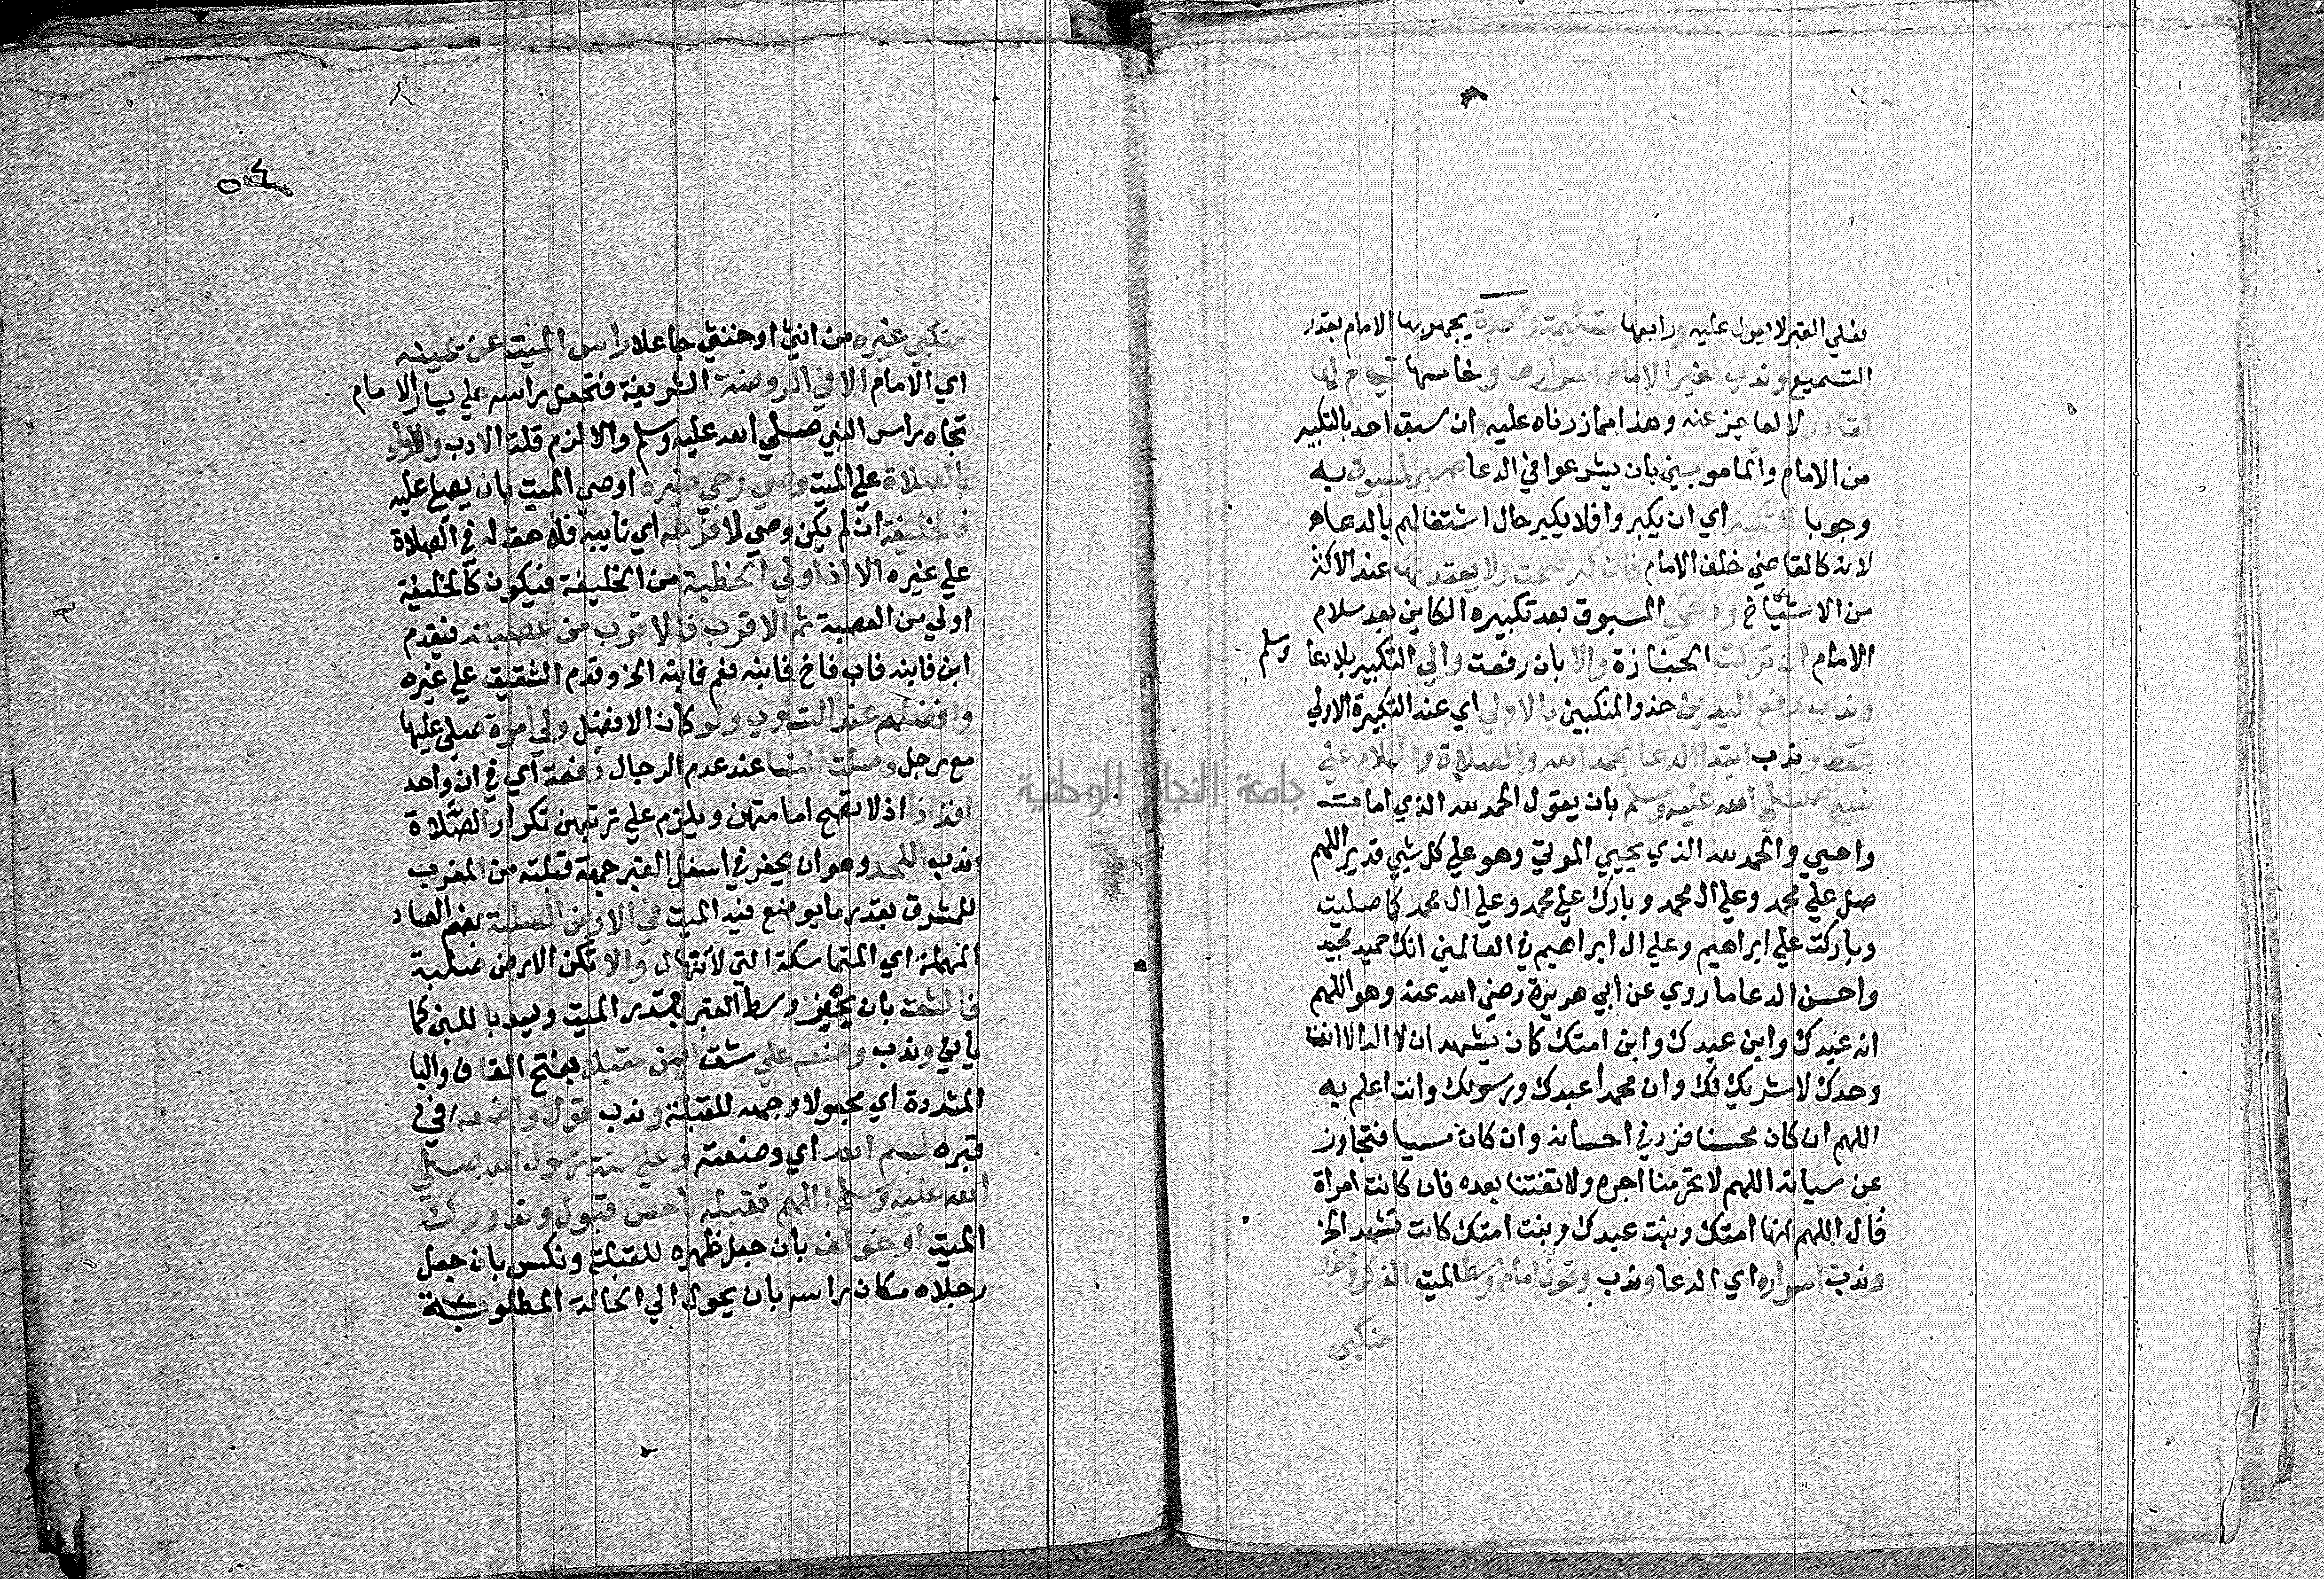 فعلي القبر لا يعول عليه ورابعها تسليمة واحدة يجهر بها الامام بقدر
التسميع وندب لغير الامام اسرارها وخامسها قيام لها
لقادر لا لعاجز عنه وهذا مما زدناه عليه وان سبق احد بالتكبير
من الامام والمامومين بان يشرعوا في الدعا صبر المسبوق به
وجوبا للتكبير اي ان يكبروا فلا يكبر حال اشتغالهم بالدعاء
لانه كالقاضي خلف الامام فان كبر صحت ولا يعتد بها عند الاكثر
من الاشياخ ودعي المسبوق بعد تكبيره الكاين بعد سلام
الامام ان تركت الجنازة والا بان رفعت والي التكبير بلا دعا وسلم
وندب رفع اليدين حذو المنكبين بالاولي اي عند التكبيرة الاولي
فقط وندب ابتدا الدعا بحمد الله والصلاة والسلام علي
نبيه صلي الله عليه وسلم بان يقول الحمد لله الذي امات
واحيي والحمد لله الذي يحيي الموتي وهو علي كل شي قدير اللهم
صل علي محمد وعلي ال محمد وبارك علي محمد وعلي ال محمد كما صليت
وباركت علي ابراهيم وعلي ال ابراهيم في العالمين انك حميد مجيد
واحسن الدعا ما روي عن ابي هريرة رضي الله عنه وهو اللهم
انه عبدك وابن عبدك وابن امتك كان يشهد ان لا اله الا انت
وحدك لا شريك لك وان محمدا عبدك ورسولك وانت اعلم به
اللهم ان كان محسنا فزد في احسانه وان كان مسيا فتجاوز
عن سياته اللهم لا تحرمنا اجره ولا تفتنا بعده فان كانت امراة
قال اللهم انها امتك وبنت عبدك وبنت امتك كانت تشهد الخ
وندب اسراره اي الدعا وندب وقوف امام وسط الميت الذكر وحذو
منكبي
٥٤
منكبي غيره من انثي او خنثي جاعلا راس الميت عن يمينه
اي الامام الا في الروضة الشريفة فتجعل راسه علي يسار الامام
تجاه راس النبي صلي الله عليه وسلم والا لزم قلة الادب والاولي
بالصلاة علي الميت وصي رجي خيره اوصي الميت بان يصلي عليه
فالخليفة ان لم يكن وصي لا فرعه اي نايبه فلا حق له في الصلاة
علي غيره الا اذا ولي الخطبة من الخليفة فيكون كالخليفة
اولي من العصبة ثم الاقرب فالاقرب من عصبته فيقدم
ابن فابنه فاب فاخ فابنه فعم فابنه الخ وقدم الشقيق علي غيره
وافضلهم عند التساوي ولو كان الافضل ولي امراة صلي عليها
مع رجل وصلت النسا عند عدم الرجال دفعة اي في ان واحد
افذاذا اذ لا تصح امامتهن ويلزم علي ترتبهن تكرار الصلاة
وندب اللحد وهو ان يحفر في اسفل القبر جهة قبلته من المغرب
للمشرق بقدر ما يوضع فيه الميت في الارض الصلبة بضم الصاد
المهملة اي المتماسكة التي لا تنهال والا تكن الارض صلبة
فالشق بان يحفر وسط القبر بقدر الميت ويسد باللبن كما
ياتي وندب وضعه علي شق ايمن مقبلا بفتح القاف والبا
المشددة اي مجعولا وجهه للقبلة وندب قول واضعه في
قبره بسم الله اي وضعته وعلي سنة رسول الله صلي
الله عليه وسلم اللهم تقبله باحسن قبول وتدورك
الميت ان خولف بان جعل ظهره للقبلة ونكس بان جعل
رجلاه مكان راسه بان يحول الي الحالة المطلوبة
جامعة النجاح الوطنية